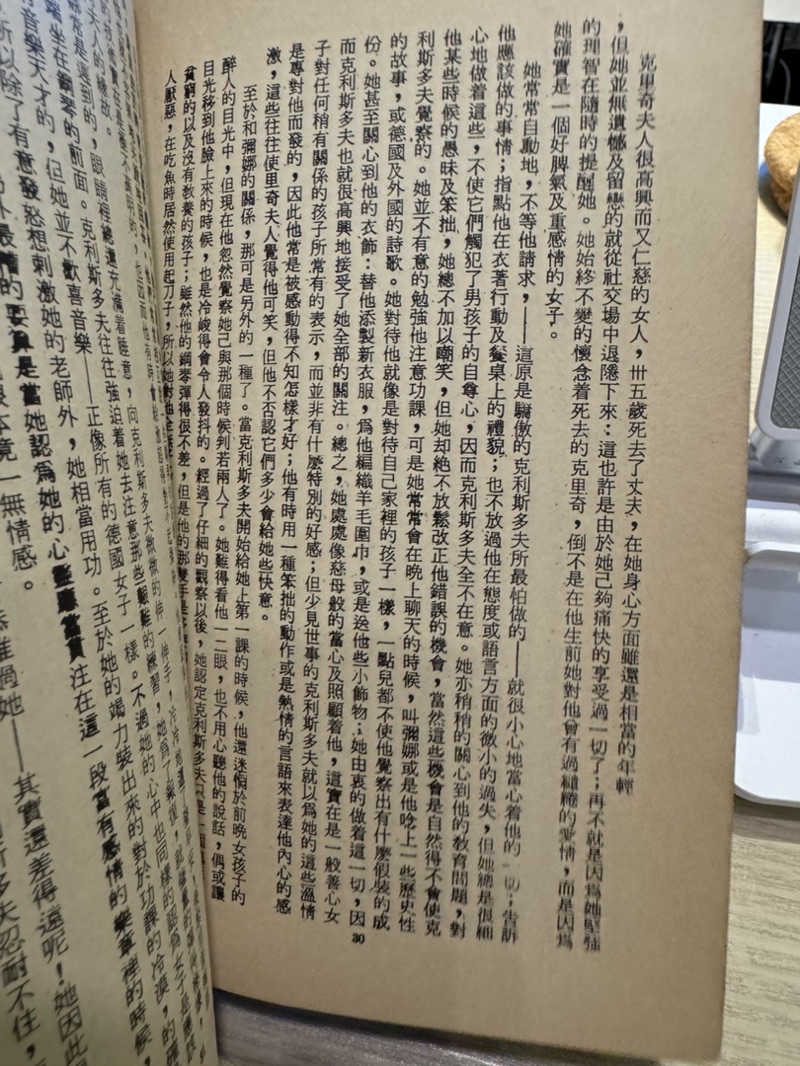 克里奇夫人很高興而又仁慈的女人，卅五歲死去了丈夫，在她身心方面雖還是相當的年輕
，但她並無遺憾及留戀的就從社交場中退隱下來：這也許是由於她已夠痛快的享受過一切了；再不就是因爲她堅強
的理智在隨時的提醒她。她始終不變的懷念着死去的克里奇，倒不是在他生前她對他曾有過繾綣的愛情，而是因爲
她確實是一個好脾氣及重感情的女子。
她常常自動地，不等他請求，——這原是驕傲的克利斯多夫所最怕做的——就很小心地當心着他的一切；告訴
他應該做的事情；指點他在衣著行動及餐桌上的禮貌；也不放過他在態度或語言方面的微小的過失，但她總是很細
心地做着這些，不使它們觸犯了男孩子的自尊心，因而克利斯多夫全不在意。她亦稍稍的關心到他的教育問題，對
他某些時候的愚昧及笨拙，她總不加以嘲笑，但她却絶不放鬆改正他錯誤的機會，當然這些機會是自然得不會使克
利斯多夫覺察的。她並不有意的勉強他注意功課，可是她常常會在晚上聊天的時候，叫彌娜或是他唸上一些歷史性
的故事，或德國及外國的詩歌。她對待他就像是對待自己家裡的孩子一樣，一點兒都不使他覺察出有什麼假裝的成
份。她甚至關心到他的衣飾：替他添製新衣服，爲他編織羊毛圍巾，或是送他些小飾物；她由衷的做着這一切，因
而克利斯多夫也就很高興地接受了她全部的關注。總之，她處處像慈母般的當心及照顧着他，這實在是一般善心女
子對任何稍有關係的孩子所常有的表示，而並非有什麼特別的好感；但少見世事的克利斯多夫就以爲她的這些溫情
是專對他而發的，因此他常是被感動得不知怎樣才好；他有時用一種笨拙的動作或是熱情的言語來表達他內心的感
激，這些往往使里奇夫人覺得他可笑，但他不否認它們多少會給她些快意。
至於和彌娜的關係，那可是另外的一種了。當克利斯多夫開始給她上第一課的時候，他還迷惘於前晚女孩子的
醉人的目光中，但現在他忽然覺察她己與那個時候判若兩人了。她難得看他一二眼，也不用心聽他的說話，偶或讓
目光移到他臉上來的時候，也是冷峻得會令人發抖的。經過了仔細的觀察以後，她認定克利斯多夫只是一個
貧窮的以及沒有教養的孩子；雖然他的鋼琴彈得很不差，但是他的那雙手是
人厭惡，在吃魚時居然使用起刀子，所以她對他
30
夫人的緣故。
常是遇到的，眼睛裡總還充滿着睡意，向克利斯多夫微微的伸一伸手，
坐在鋼琴的前面。克利斯多夫往往強迫着她去注意那些艱難的練習，
音樂天才的，但她並不歡喜音樂——正像所有的德國女子一樣。不過她的心中也同樣的認爲
所以除了有意發怒想刺激她的老師外，她相當用功。至於她的竭力裝出來的對於功課的冷漠，的確
最糟的要算是當她認爲她的心靈應當貫注在這一段富有感情的樂章裡的時候，
竟一無情感。
過她——其實還差得遠呢！她因此
斯多夫忍耐不住，